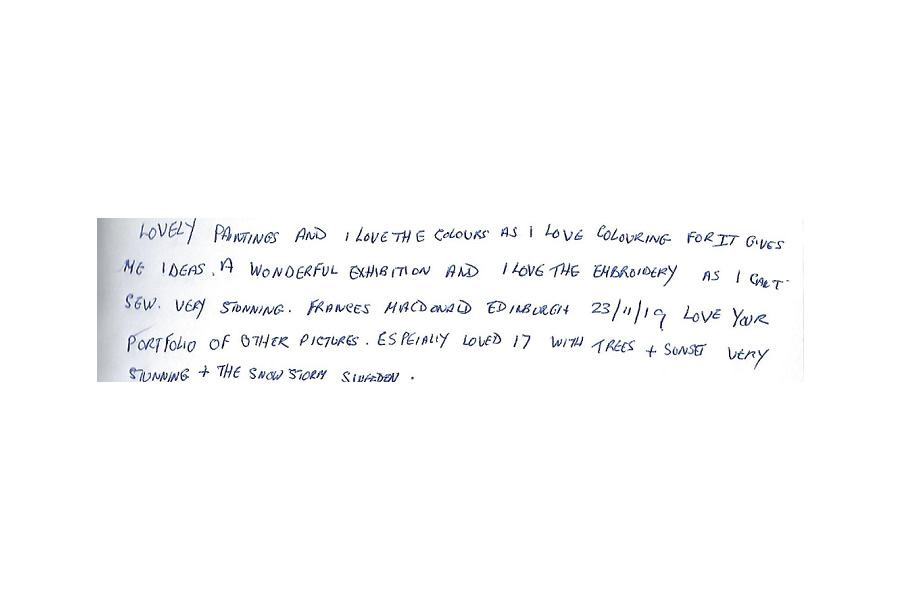 LOVELY PAINTINGS AND I LOVE THE COLOURS AS I LOVE COLOURING FOR IT GIVES
ME IDEAS. A WONDERFUL EXHIBITION AND I LOVE THE EMBROIDERY AS I CAN'T
SEW. VERY STUNNING. FRANCES MACDONALD EDINBURGH 23/11/19 LOVE YOUR
PORTFOLIO OF OTHER PICTURES. ESPECIALLY LOVED 17 WITH TREES + SUNSET VERY
STUNNING + THE SNOW STORM SWEEDEN.